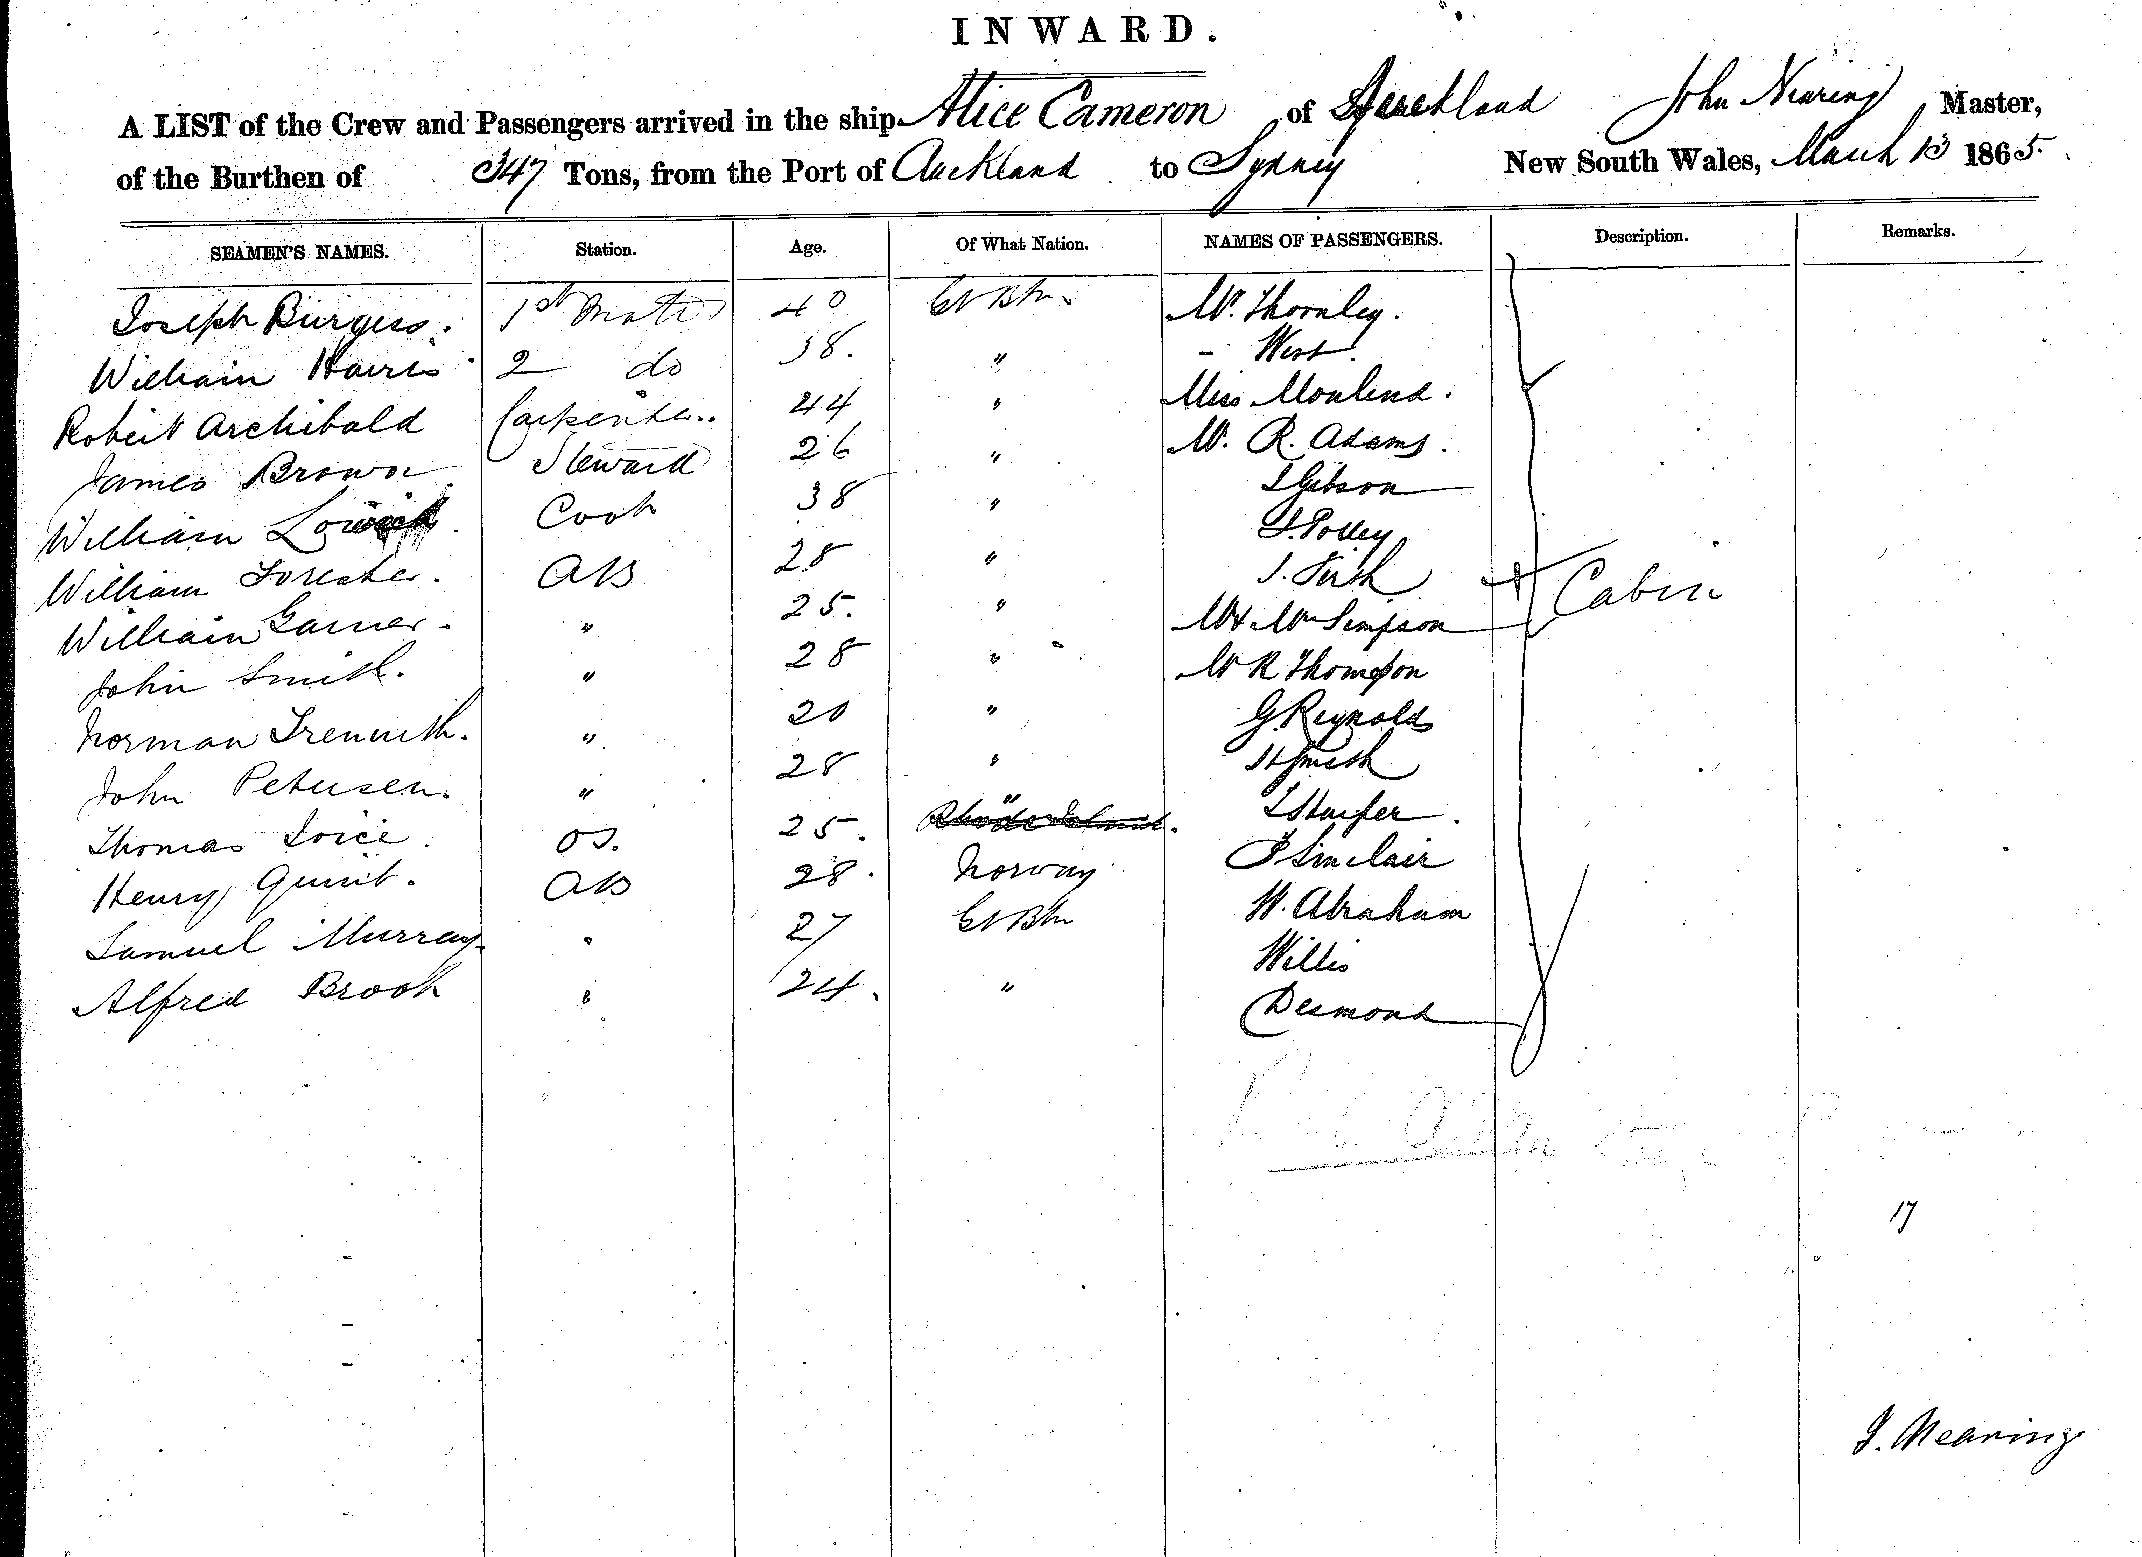 INWARD.
A LIST of the Crew and Passengers arrived in the ship Alice Cameron of Auckland John Nearing Master,
of the Burthen of 347 Tons, from the Port of Auckland to Sydney New South Wales, March 13 1865.
SEAMEN'S NAMES. Station. Age. Of What Nation. NAMES OF PASSENGERS. Description. Remarks.
Joseph Burgess. 1st Mate 40 Gt Btn. Mr. Thornley.
William Harris 2 do 38. " - West.
Robert Archibald Carpenter.. 44 " Miss
James Brown Steward 26 " Mr. R. Adams.
William Cook 38 " Gibson
William Forester. AB 28 " Polley
William Garner. " 25. " J. Firth Cabin
John Smith. " 28 " Mr & Mrs Simpson
Norman " 20 " Mr R Thompson
John Petersen. " 28 " G Reynolds
Thomas Joice. OS. 25. " H Smith
Henry AB 28. Norway
Samuel Murray " 27 Gt Btn Sinclair
Alfred Brook " 24. " W. Abraham
Willis
Desmond
17
J. Nearing